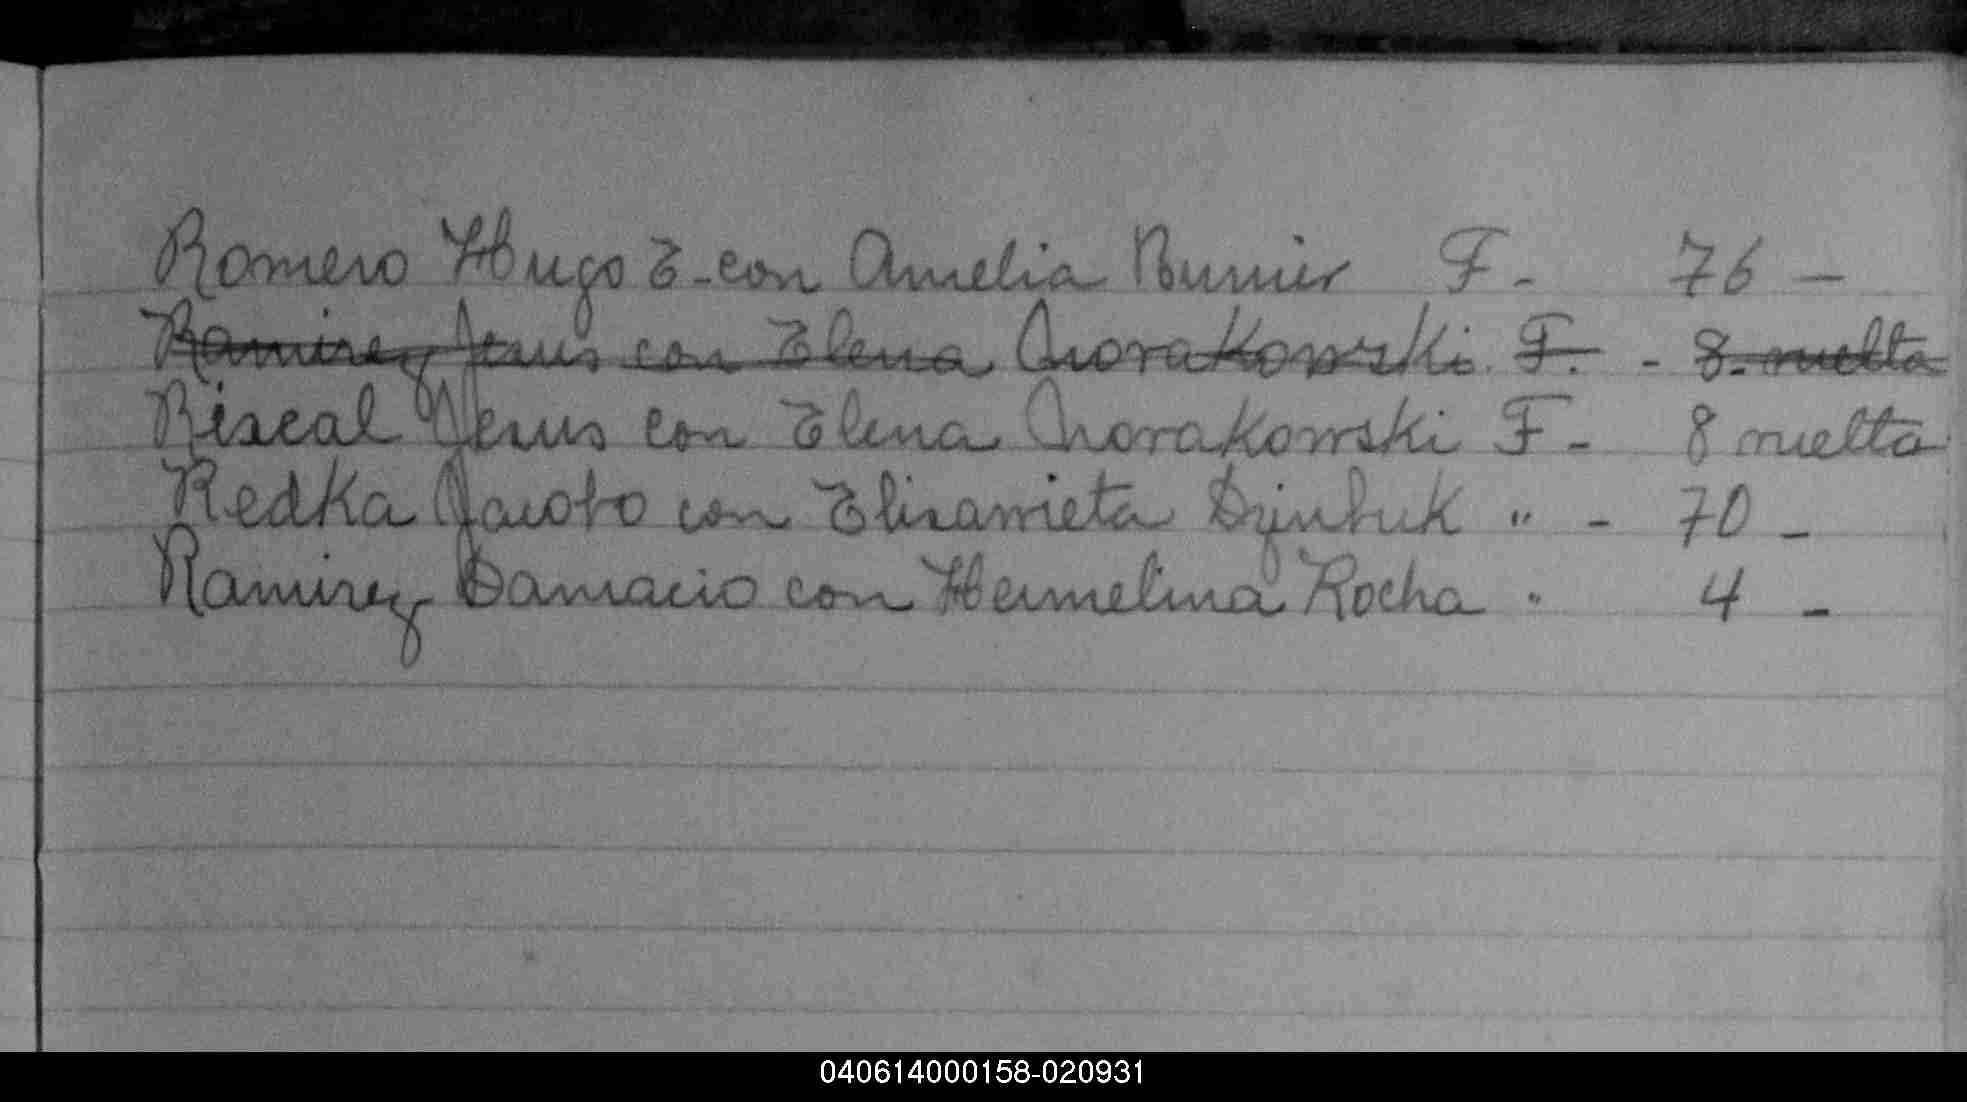 Romero Hugo E - con Amelia Bunier F - 76 -
Ramirez Jesus con Elena Chorakowski. F. - 8. vuelta
Riscal Jesus con Elena Chorakowski F - 8 vuelta
Redka Jacobo con Elisavieta " - 70 -
Ramirez Damacio con Hermelina Rocha " 4 -
040614000158-020931